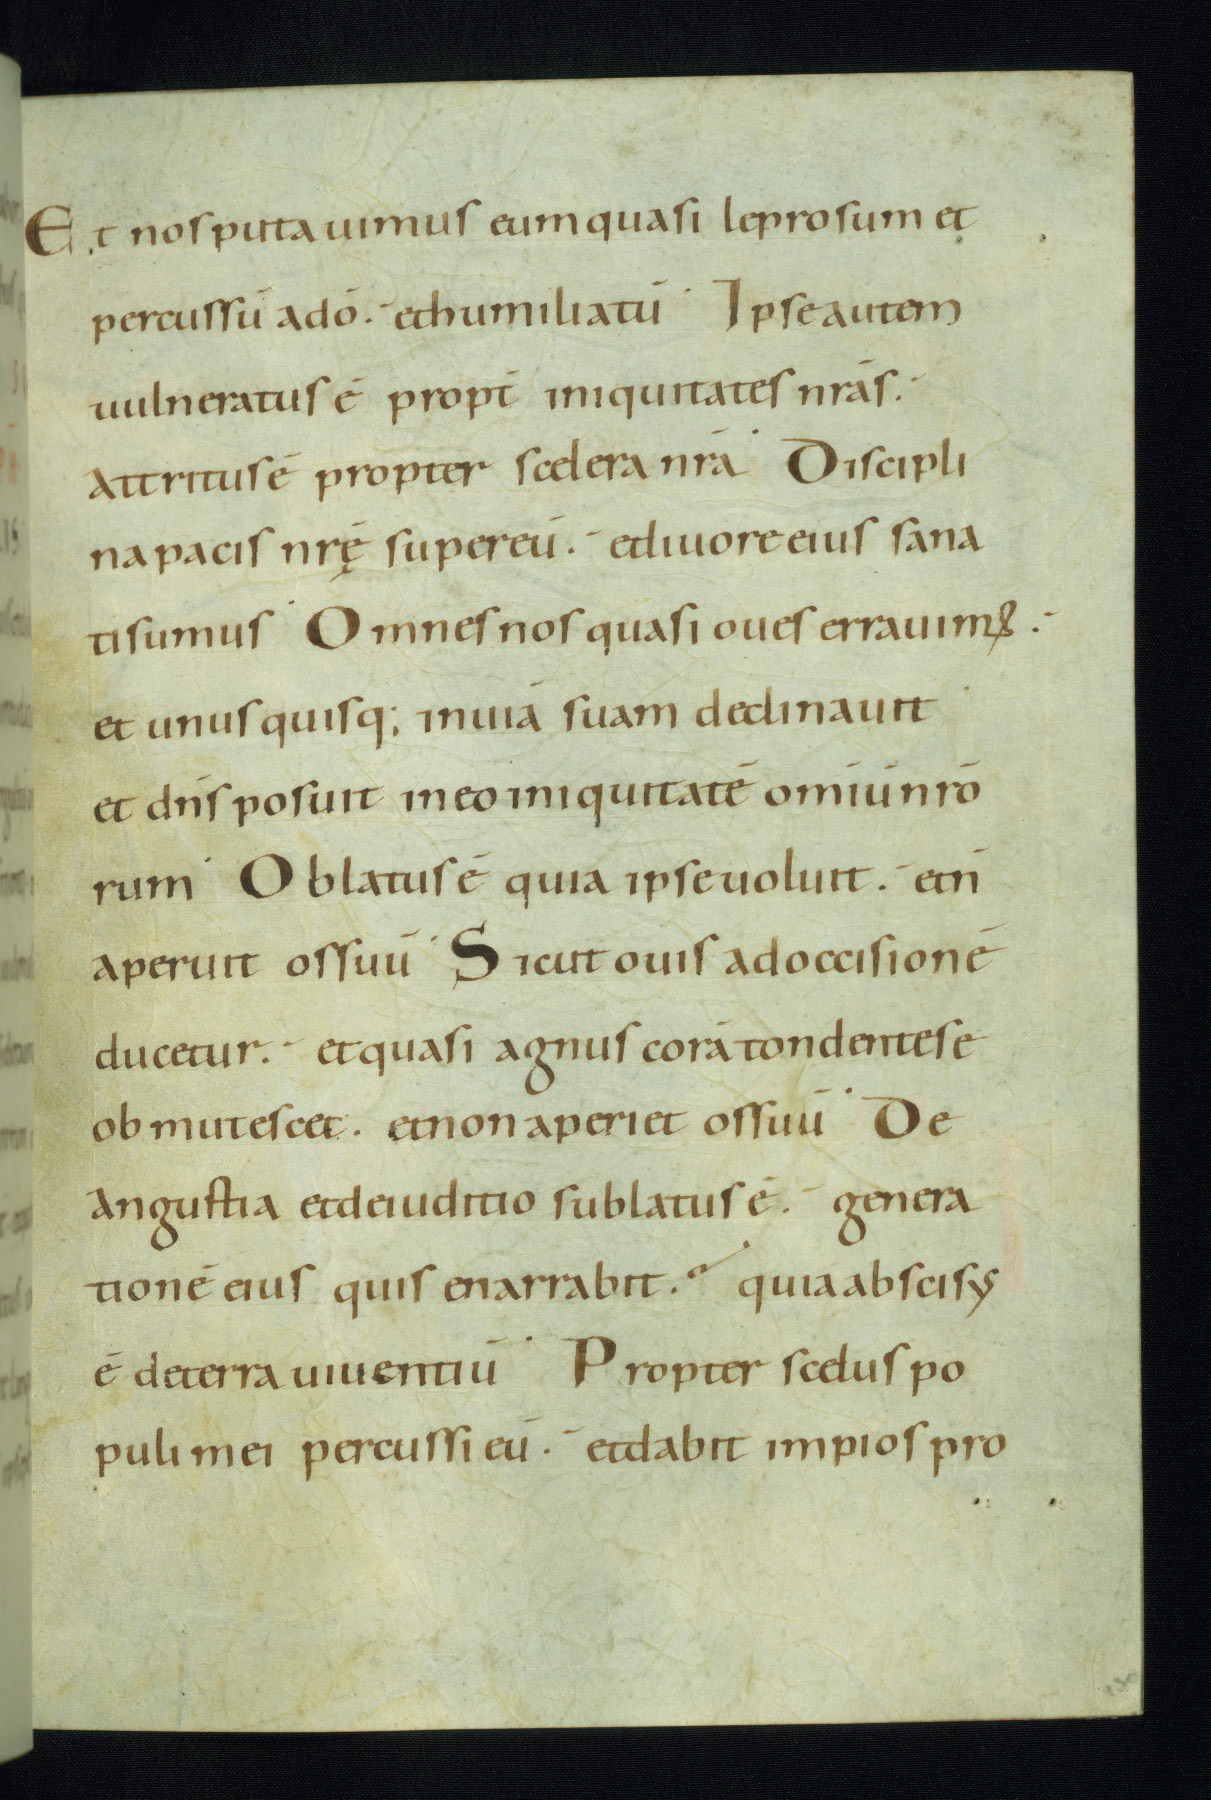 Et nos putauimus eum quasi leprosum et
percussū a dō. et humiliatū Ipse autem
uulneratus ē propt̄ iniquitates nrās.
attritus ē propter scelera nrā Discipli
na pacis nrę̄ super eū. et liuore eius sana
ti sumus Omnes nos quasi oues errauimꝰ.
et unusquisq; in uiā suam declinauit
et dn̄s posuit in eo iniquitatē omīū nrō
rum Oblatus ē quia ipse uoluit. et n̄
aperuit os suū Sicut ouis ad occisionē
ducetur. et quasi agnus corā tondente se
obmutescet. et non aperiet os suū De
angustia et de iuditio sublatus ē. genera
tionē eius quis enarrabit. quia abscisus
ē de terra uiuentiū Propter scelus po
puli mei percussi eū. et dabit impios pro